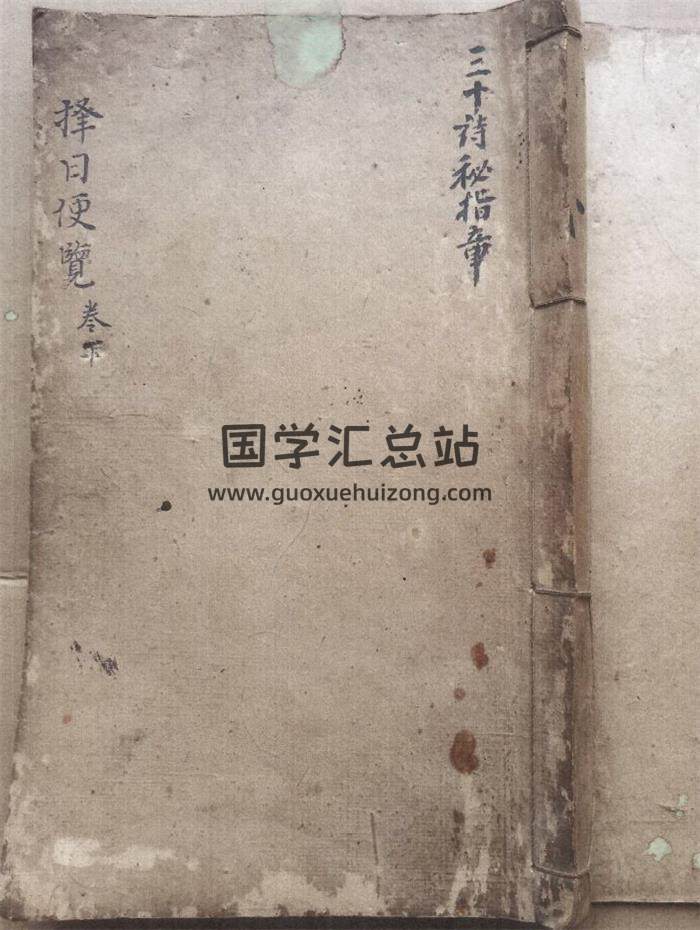 三十诗秘指章
择日便覽
卷下
国学汇总站
www.guoxuehuizong.com